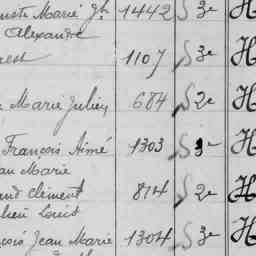 Marie Jh 1442 S 3e H
Alexandre
1107 S 3e H
Marie Julien 684 S 2e H
François Aimé 1303 S 3e H
Marie
Clément 814 S 2e H
Louis
Jean Marie 1304 S 3e H